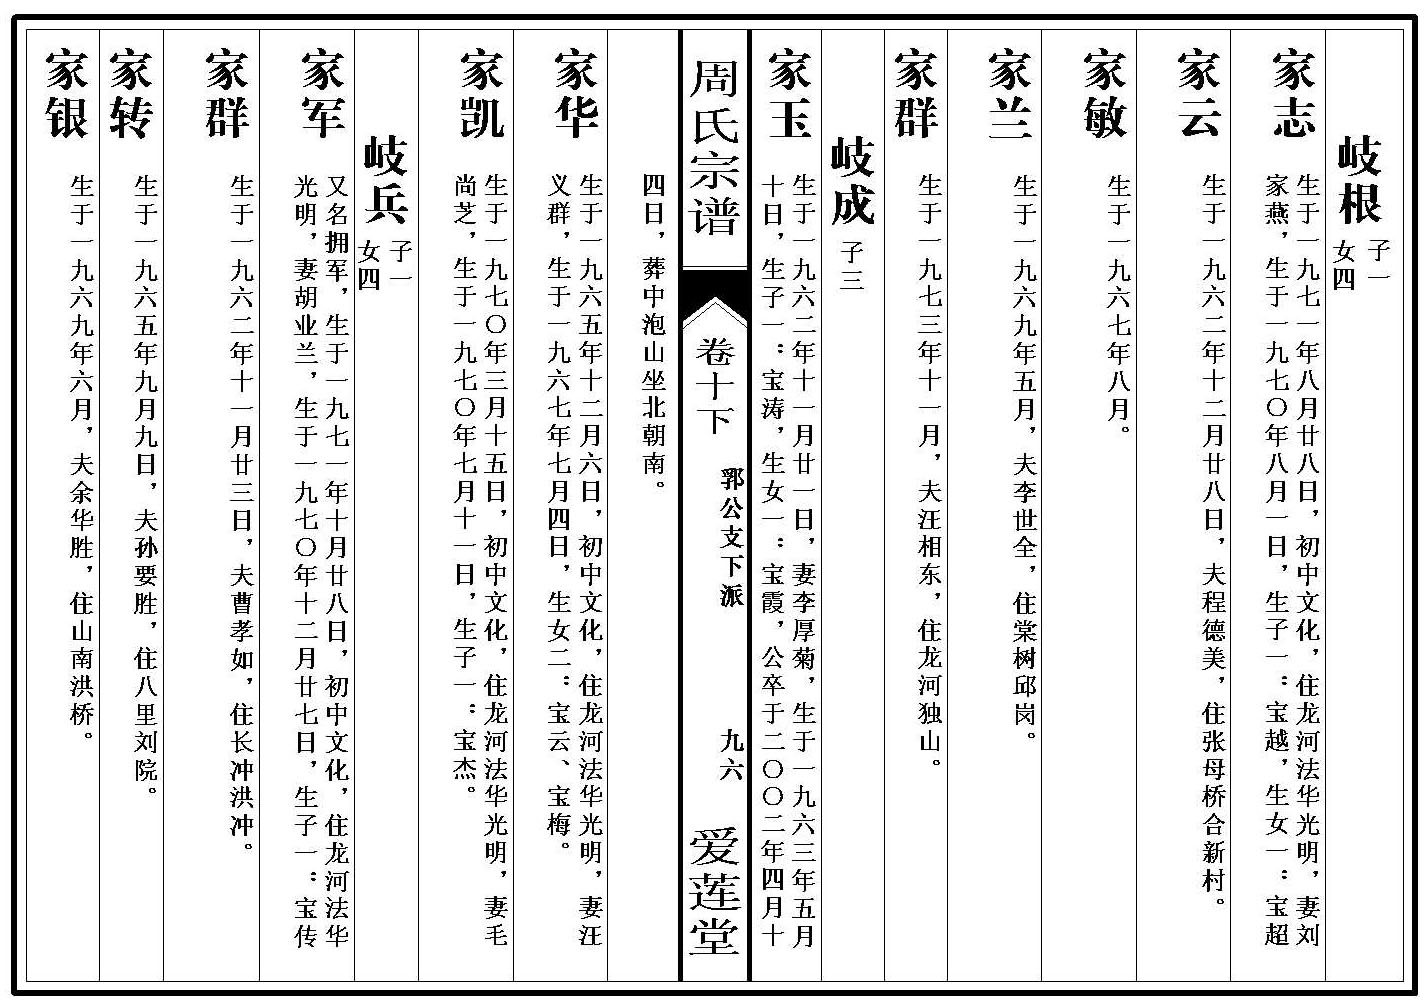 岐根
子一
女四
家志
生于一九七一年八月廿八日，初中文化，住龙河法华光明，妻刘
家燕，生于一九七〇年八月一日，生子一：宝越，生女一：宝超
家云
生于一九六二年十二月廿八日，夫程德美，住张母桥合新村。
家敏
生于一九六七年八月。
家兰
生于一九六九年五月，夫李世全，住棠树邱岗。
家群
生于一九七三年十一月，夫汪相东，住龙河独山。
岐成
子三
家玉
生于一九六二年十一月廿一日，妻李厚菊，生于一九六三年五月
十日，生子一：宝涛，生女一：宝霞，公卒于二〇〇二年四月十
周氏宗谱
卷十下
郢公支下派
九六
爱莲堂
四日，葬中泡山坐北朝南。
家华
生于一九六五年十二月六日，初中文化，住龙河法华光明，妻汪
义群，生于一九六七年七月四日，生女二：宝云、宝梅。
家凯
生于一九七〇年三月十五日，初中文化，住龙河法华光明，妻毛
尚芝，生于一九七〇年七月十一日，生子一：宝杰。
岐兵
子一
女四
家军
又名拥军，生于一九七一年十月廿八日，初中文化，住龙河法华
光明，妻胡业兰，生于一九七〇年十二月廿七日，生子一：宝传
家群
生于一九六二年十一月廿三日，夫曹孝如，住长冲洪冲。
家转
生于一九六五年九月九日，夫孙要胜，住八里刘院。
家银
生于一九六九年六月，夫余华胜，住山南洪桥。